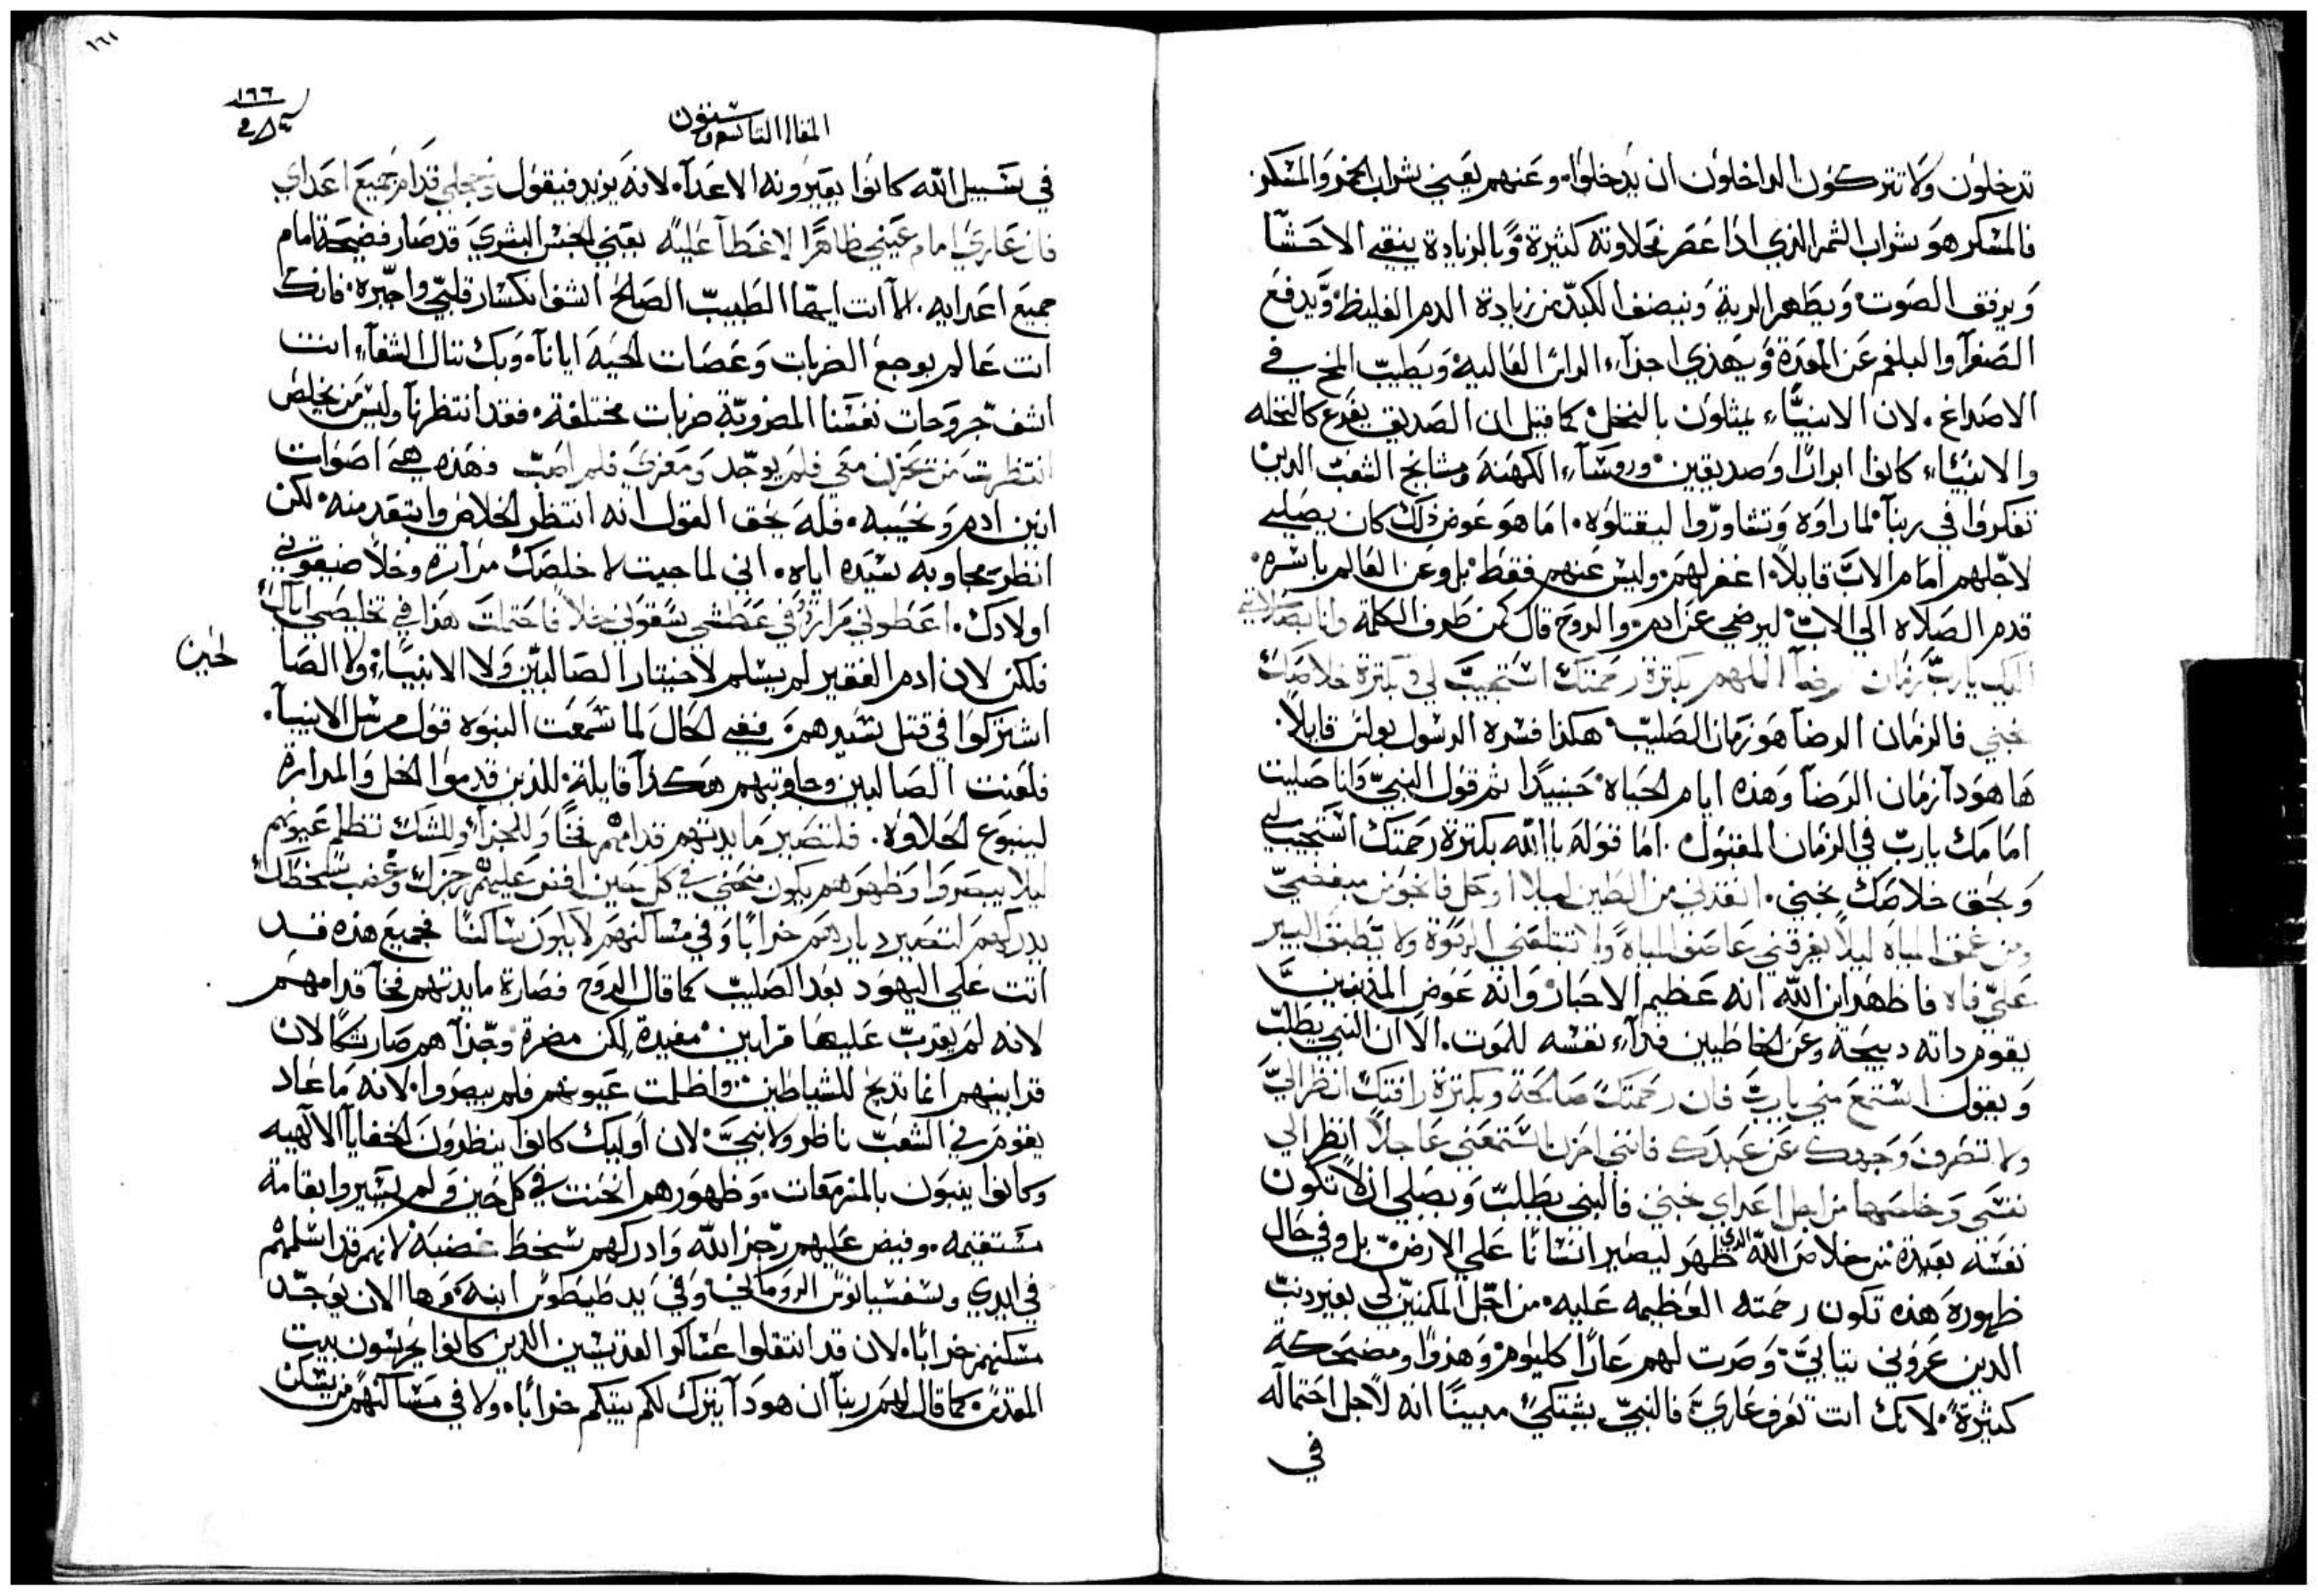 تدخلون ولا تتركون الداخلون ان يدخلوا. وعنهم يعني بشراب الخمر والمسكر
فالمسكر هو شراب الثمر الذي اذا عصر فحلاوته كثيرة وبالزيادة ينقي الاحشا
ويرقق الصوت ويطهر الرية وينصف الكبد من زيادة الدم الغليظ ويدفع
الصفرآ والبلغم عن المعدة ويهذي اجزآء الراس العالية ويطيب المخ في
الاصداغ. لان الانبيآء يمثلون بالنخل كما قيل ان الصديق يفرع كالنخله
والانبيآء كانوا ابرارًا وصديقين وروسآء الكهنة ومشايخ الشعب الذين
تفكروا في ربنا لما راوه وتشاوروا ليقتلوه. اما هو عوض ذلك كان يصلي
لاجلهم امام الاب قايلاً اغفر لهم وليس عنهم فقط بل وعن العالم باسره.
قدم الصلاه الي الاب ليرضي عن ادم والروح قال كمن طرف الكلمة وانا بصلاتي
اليك يارب زمان رضآ اللهم بكثرة رحمتك استجيب لي وبكثرة خلاصك
نجني فالزمان الرضا هو زمان الصليب هكذا فسره الرسول بولس قايلاً.
ها هوذا زمان الرضا وهذه ايام الحياه حينيدًا ثم قول النبي وانا صليت
امامك يارب في الزمان المقبول. اما قوله يا الله بكثرة رحمتك استجيب لي
وبحق خلاصك نجني. انقذني من الطين ليلا اوحل فانجو من مبغضي
ومن عمق المياه ليلاً يغرقني عاصف المياه ولا تبتلعني الربوة ولا تطبق البير
علي فاه فاظهر ابن الله انه عظيم الاحبار وانه عوض المذنبين
يقوم ذاته دبيحة وعن الخاطيين فدآء نفسه للموت. الا ان النبي يطلب
ويقول استمع مني يارب فان رحمتك صالحة وبكثرة رافتك انظر الي
ولا تصرف وجهك عن عبدك فانني احزن استمعني عاجلاً انظر الي
نفسي وخلصها من اجل اعداي نجني فالنبي يطلب ويصلي ان لا تكون
نفسه بعيدة من خلاص الله الذي ظهر ليصير انسانًا علي الارض بل وفي حال
ظهوره هذه تكون رحمته العظيمه عليه. من اجل المكنين لي بغير دنب
الدين عروني ثيابي وصرت لهم عارًا كليوم وهذوًا ومضحكة
كثيرة. لانك انت تعرف عاري فالنبي يشتكي مبينًا انه لاجل احتماله
في
١٦١
١٦٦
المقال التاسع وستون
في سبيل الله كانوا يعيرونه الاعدآ. لانه يزيد فيقول وخجلي قدام جميع اعداي
فان عاري امام عيني ظاهرًا لا غطآ عليه يعني الجنس البشري قد صار فضيحة امام
جميع اعدايه. الا انت ايها الطبيب الصالح اشف انكسار قلبي واجبره. فانك
انت عالم بوجع الضربات وعضات الحية ايانا. وبك ننال الشفآء انت
اشف جروحات نفسنا المضروبة ضربات مختلفة. فقد انتظرنا وليس من يخلص
انتظرت من يحزن معي فلم يوجد ومعزي فلم اصب فهذه هي اصوات
انين ادم ونحيبه. فله يحق القول انه انتظر الخلاص وابتعد منه لكن
انظر مجاوبه سيده اياه. اني لما جيت لاخلصك مرارة وخلاً ضيقوني
اولادك. اعطوني مرارة وفي عطشي سقوني خلاً فاحتملت هذا في تخليصي اياك
فلكن لان ادم الفقير لم يسلم لاختيار الصالبين ولا الانبيآء ولا الصا
لحين
اشتركوا في قتل سيدهم ففي الحال لما سمعت النبوه قول مرسل الانبيآ.
فلعنت الصالبين وجاوبتهم هكذا قايلة للذين قدموا الخل والمرارة
لينبوع الحلاوه. فلتصير مايدتهم قدامهم فخًا وللجزآ وللشك تظلم عيونهم
ليلا يبصروا وظهورهم يكون منحني في كل حين افض عليهم رجزك وغضب سخطك
يدركهم لتصير ديارهم خرابًا وفي مساكنهم لا يكون ساكنًا فجميع هذه قد
اتت علي اليهود بعد الصليب كما قال الروح فصارة مايدتهم فخآ قدامهم
لانه لم يقرب عليها قرابين مفيدة لكن مضرة وجزآهم صار شكًا لان
قرابينهم انما تدبح للشياطين واظلمت عيونهم فلم يبصروا. لانه ما عاد
يقوم في الشعب ناظر ولا نبي. لان اوليك كانوا ينظرون الخفايا الالهيه
وكانوا ينبون بالمزمعات. وظهورهم انحنت في كل حين ولم يسيروا بقامة
مستقيمه. وفيض عليهم رجز الله وادركهم سخط غضبه لانهم قد اسلمهم
في ايدي وسفسيانوس الروماني وفي يد طيطوس ابنه. وها الان يوجد
مسكنهم خرابًا. لان قد انتقلوا عساكر القديسين الذين كانوا يحرسون بيت
المقدس كما قال لهم ربنا ان هوذا يترك لكم بيتكم خرابًا. ولا في مساكنهم من يسكن